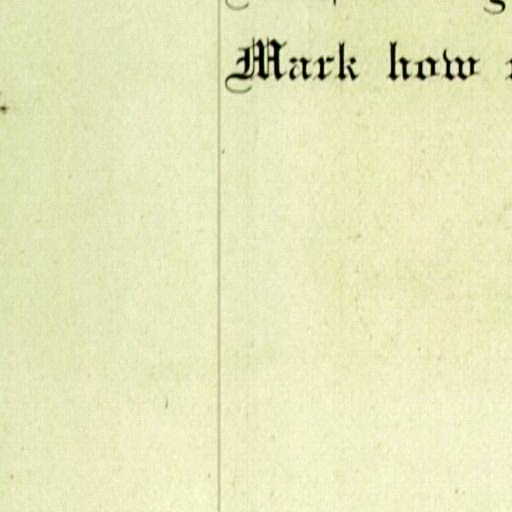 Mark how